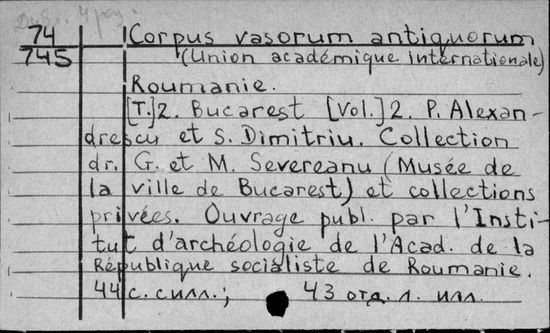 74
745
Corpus vasorum antiquorum
(Union académique internationale)
Roumanie.
[T.]2. Bucarest [Vol.]2. P. Alexan-
drescu et S. Dimitriu. Collection
dr. G. et M. Severeanu (Musée de
la ville de Bucarest) et collections
privées. Ouvrage publ. par l'Insti-
tut d'archéologie de l'Acad. de la
République socialiste de Roumanie.
44 с. силл.; 43 отд. л. илл.